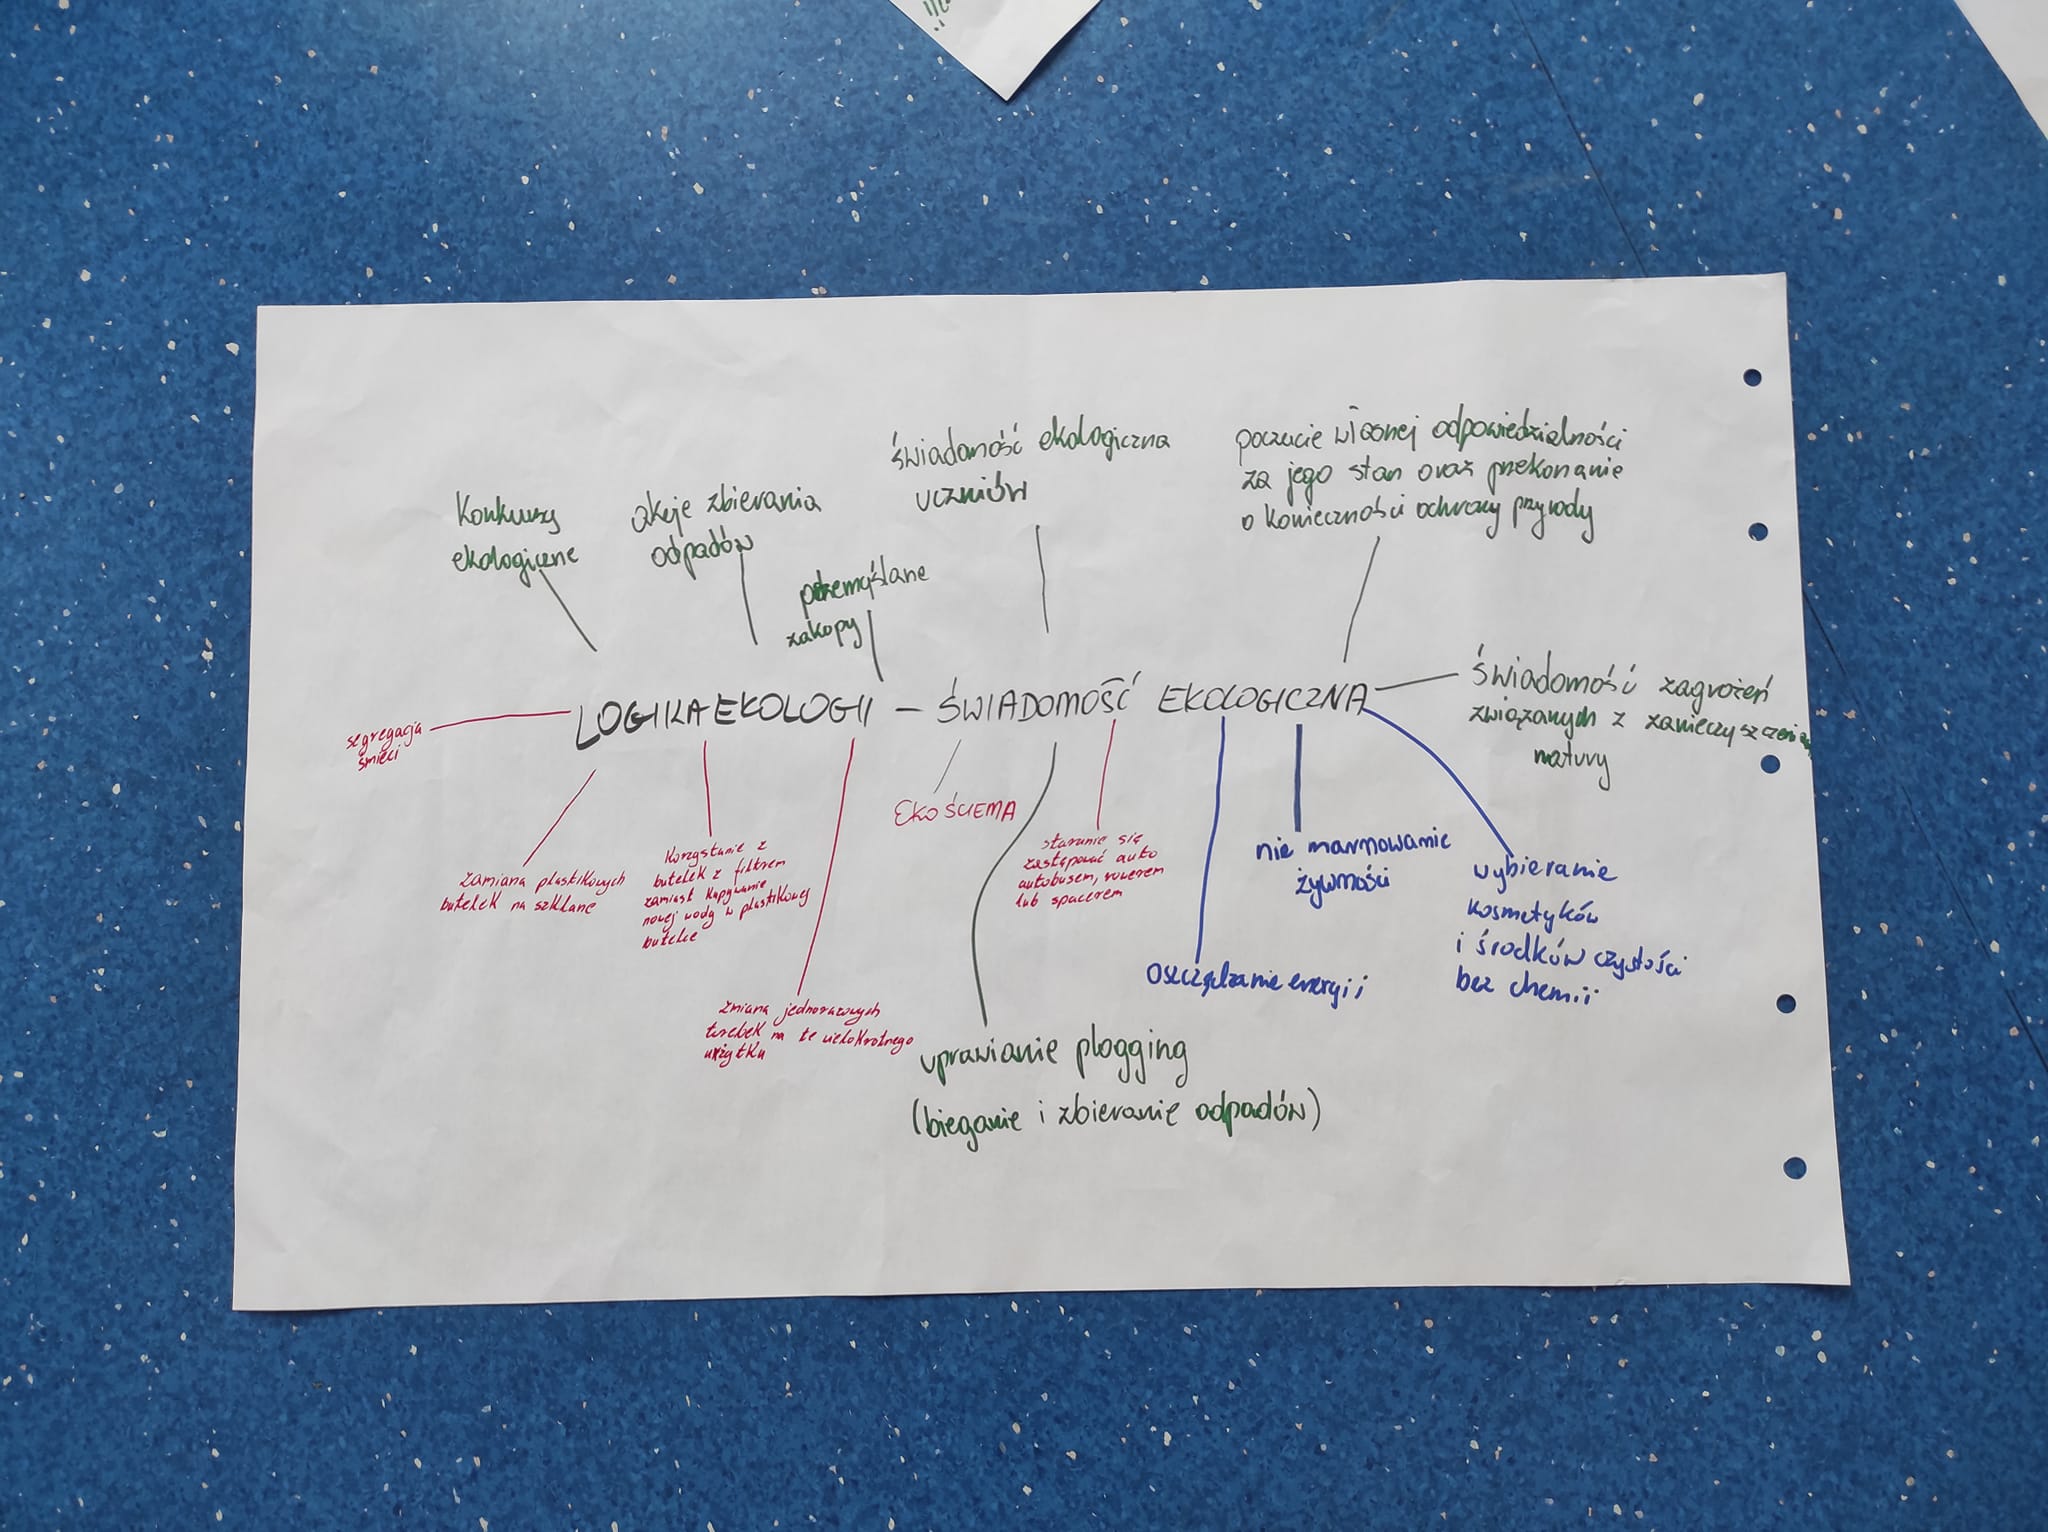 Konkursy
ekologiczne
akcje zbierania
odpadów
przemyślane
zakupy
świadomość ekologiczna
uczniów
poczucie własnej odpowiedzialności
za jego stan oraz przekonanie
o konieczności ochrony przyrody
LOGIKA EKOLOGII – ŚWIADOMOŚĆ EKOLOGICZNA
świadomość zagrożeń
związanych z zanieczyszczeniem
natury
segregacja
śmieci
zamiana plastikowych
butelek na szklane
Korzystanie z
butelek z filtrem
zamiast kupywanie
nowej wody w plastikowej
butelce
zmiana jednorazowych
torebek na te wielokrotnego
użytku
EKOŚCIEMA
staranie się
zastępować auto
autobusem, rowerem
lub spacerem
uprawianie plogging
(bieganie i zbieranie odpadów)
oszczędzanie energii
nie marnowanie
żywności
wybieranie
kosmetyków
i środków czystości
bez chemii